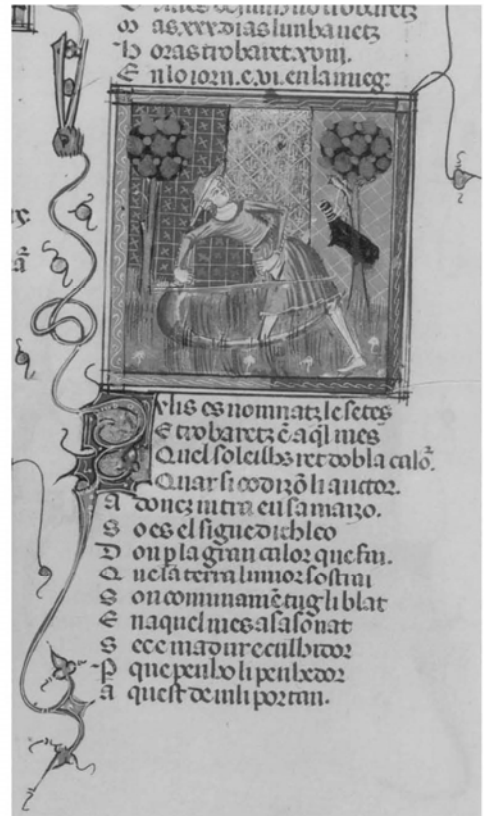 M as .xxx. dias lun bauetz
H oras trobaret .xviii.
E n lo iorn. e .vi. en la nueg.
Ulis es nomnatz le setes
E trobaretz ē aq̄l mes
Quel soleilhs ret dobla calor̄.
Quar si co dizō li auctor.
A doncz intra en sa mazo.
S o es el signe dich leo
D on p̲ la gran calor que fai.
Q ue la terra limmor sostrai
S on comunamēt tug li blat
E naquel mes asasonat
S ec e madur e culhidor
P que penho li penhedor
A quest de iuli portan.